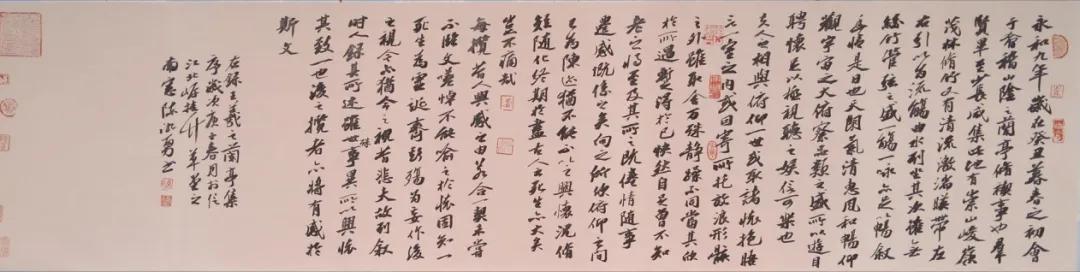 永和九年歲在癸丑暮春之初會
于會稽山陰之蘭亭脩禊事也群
賢畢至少長咸集此地有崇山峻嶺
茂林脩竹又有清流激湍暎帶左
右引以為流觴曲水列坐其次雖無
絲竹管弦之盛一觴一詠亦足以暢敘
幽情是日也天朗氣清惠風和暢仰
觀宇宙之大俯察品類之盛所以遊目
騁懷足以極視聽之娛信可樂也
夫人之相與俯仰一世或取諸懷抱晤
言一室之內或因寄所託放浪形骸
之外雖取舍萬殊靜躁不同當其欣
於所遇暫得於己快然自足曾不知
老之將至及其所之既倦情隨事
遷感慨係之矣向之所欣俯仰之間
已為陳迹猶不能不以之興懷況脩
短隨化終期於盡古人云死生亦大矣
豈不痛哉
每攬昔人興感之由若合一契未嘗
不臨文嗟悼不能喻之於懷固知一
死生為虛誕齊彭殤為妄作後
之視今亦猶今之視昔悲夫故列敘
時人錄其所述雖世殊事異所以興懷
其致一也後之攬者亦將有感於
斯文
右錄王羲之蘭亭集
序歲次庚子春月於
江北竹草堂之
南窗陳勇書